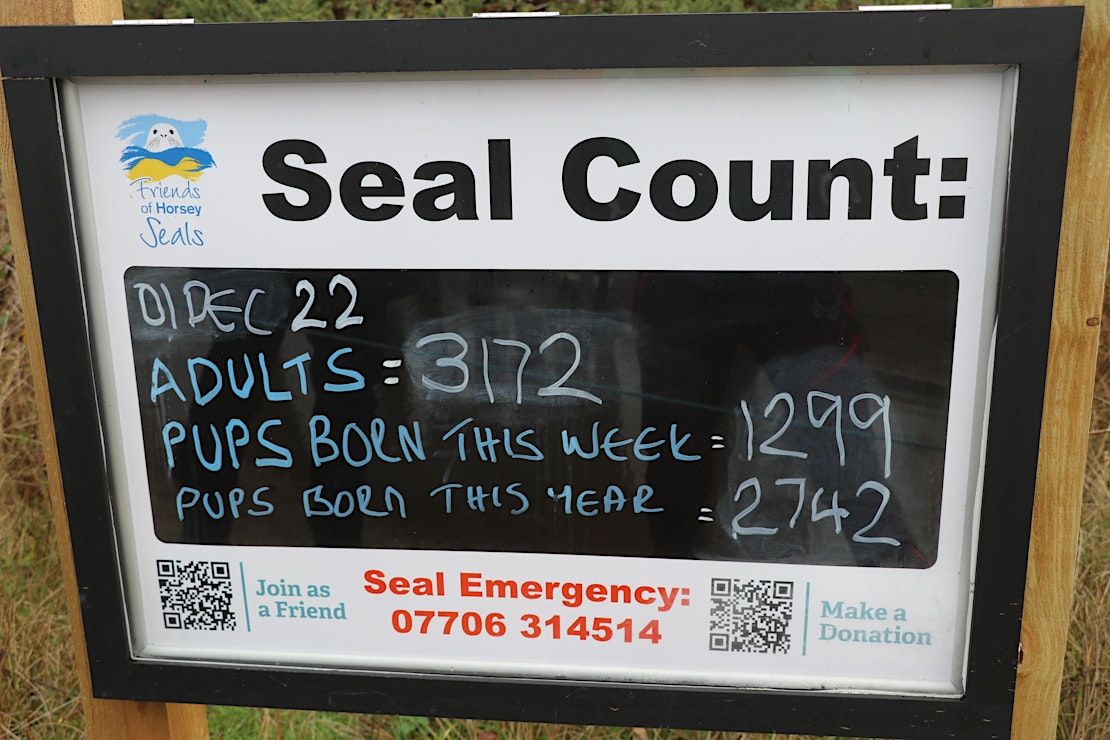 Friends
of Horsey
Seals
Seal Count:
01 DEC 22
ADULTS = 3172
PUPS BORN THIS WEEK = 1299
PUPS BORN THIS YEAR = 2742
Join as
a Friend
Seal Emergency:
07706 314514
Make a
Donation